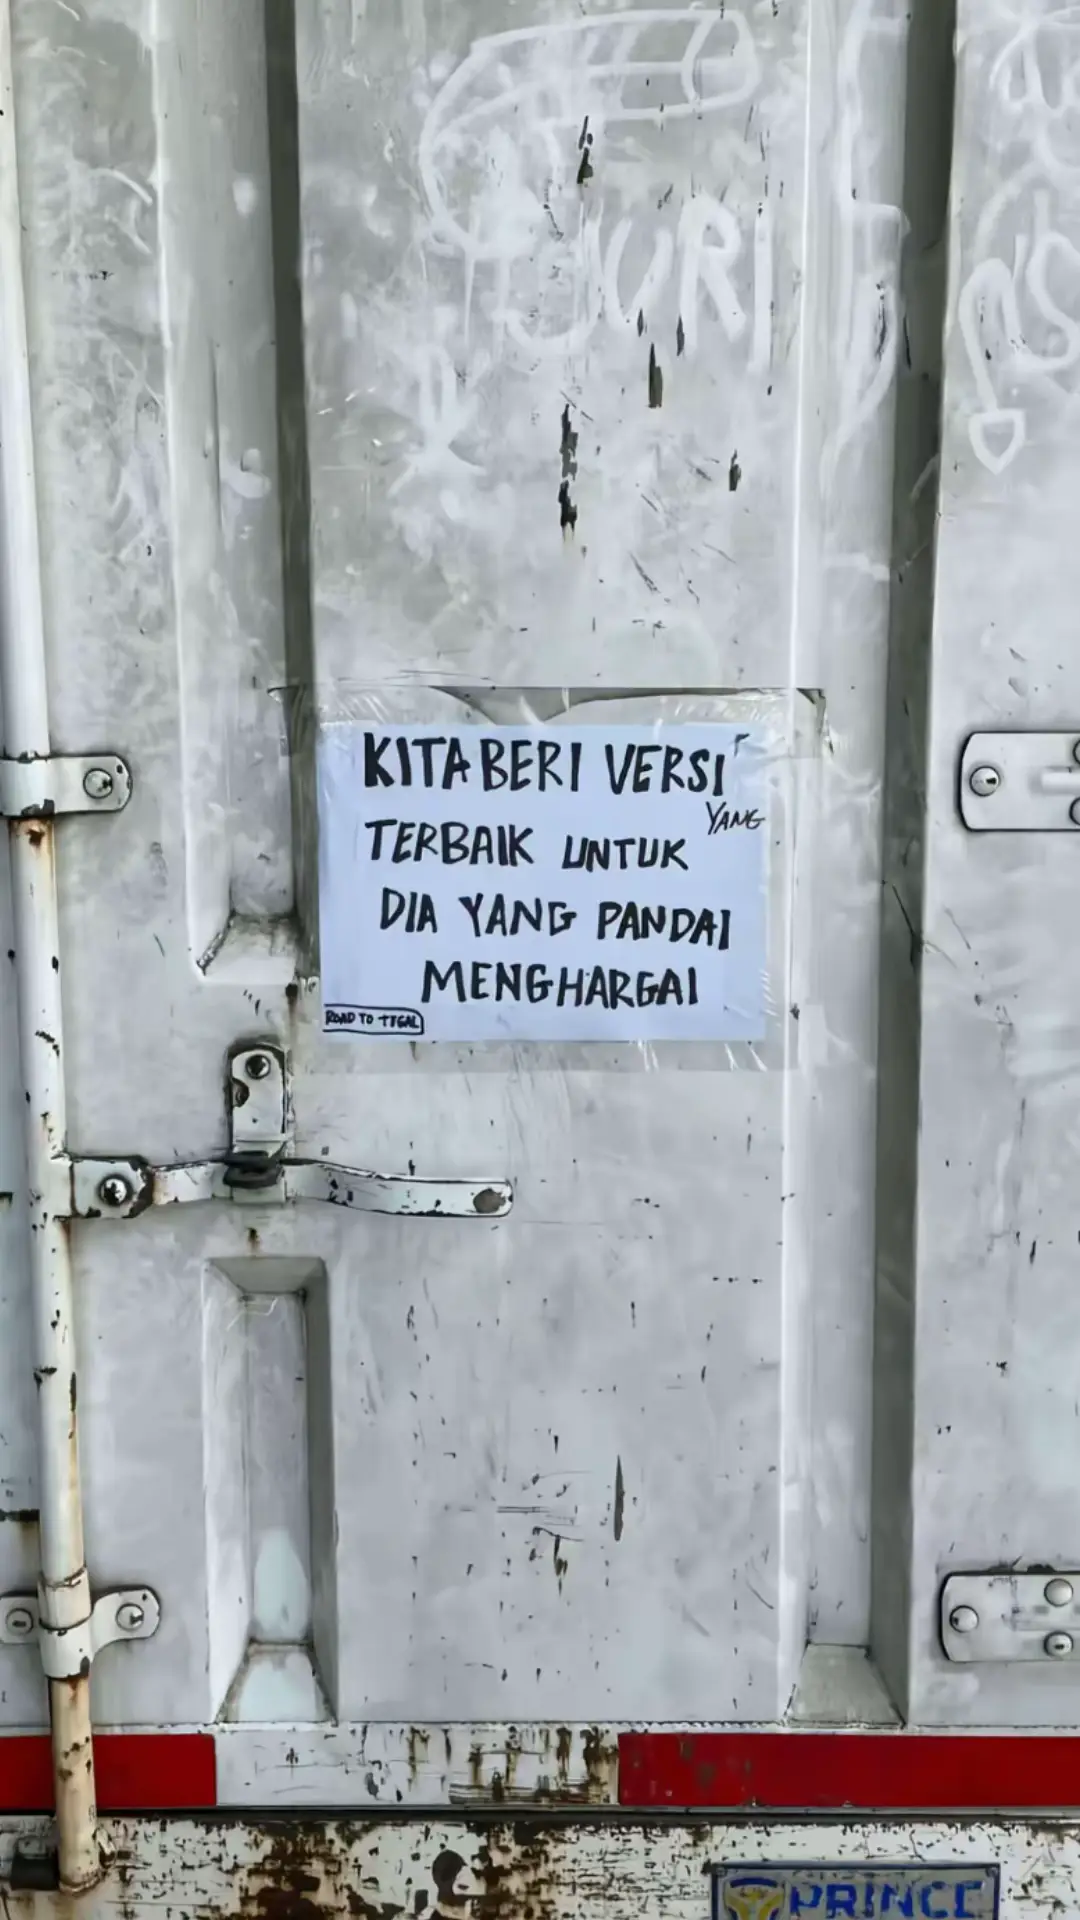 JURI
KITA BERI VERSI
YANG
TERBAIK UNTUK
DIA YANG PANDAI
MENGHARGAI
ROAD TO TEGAL
PRINCE